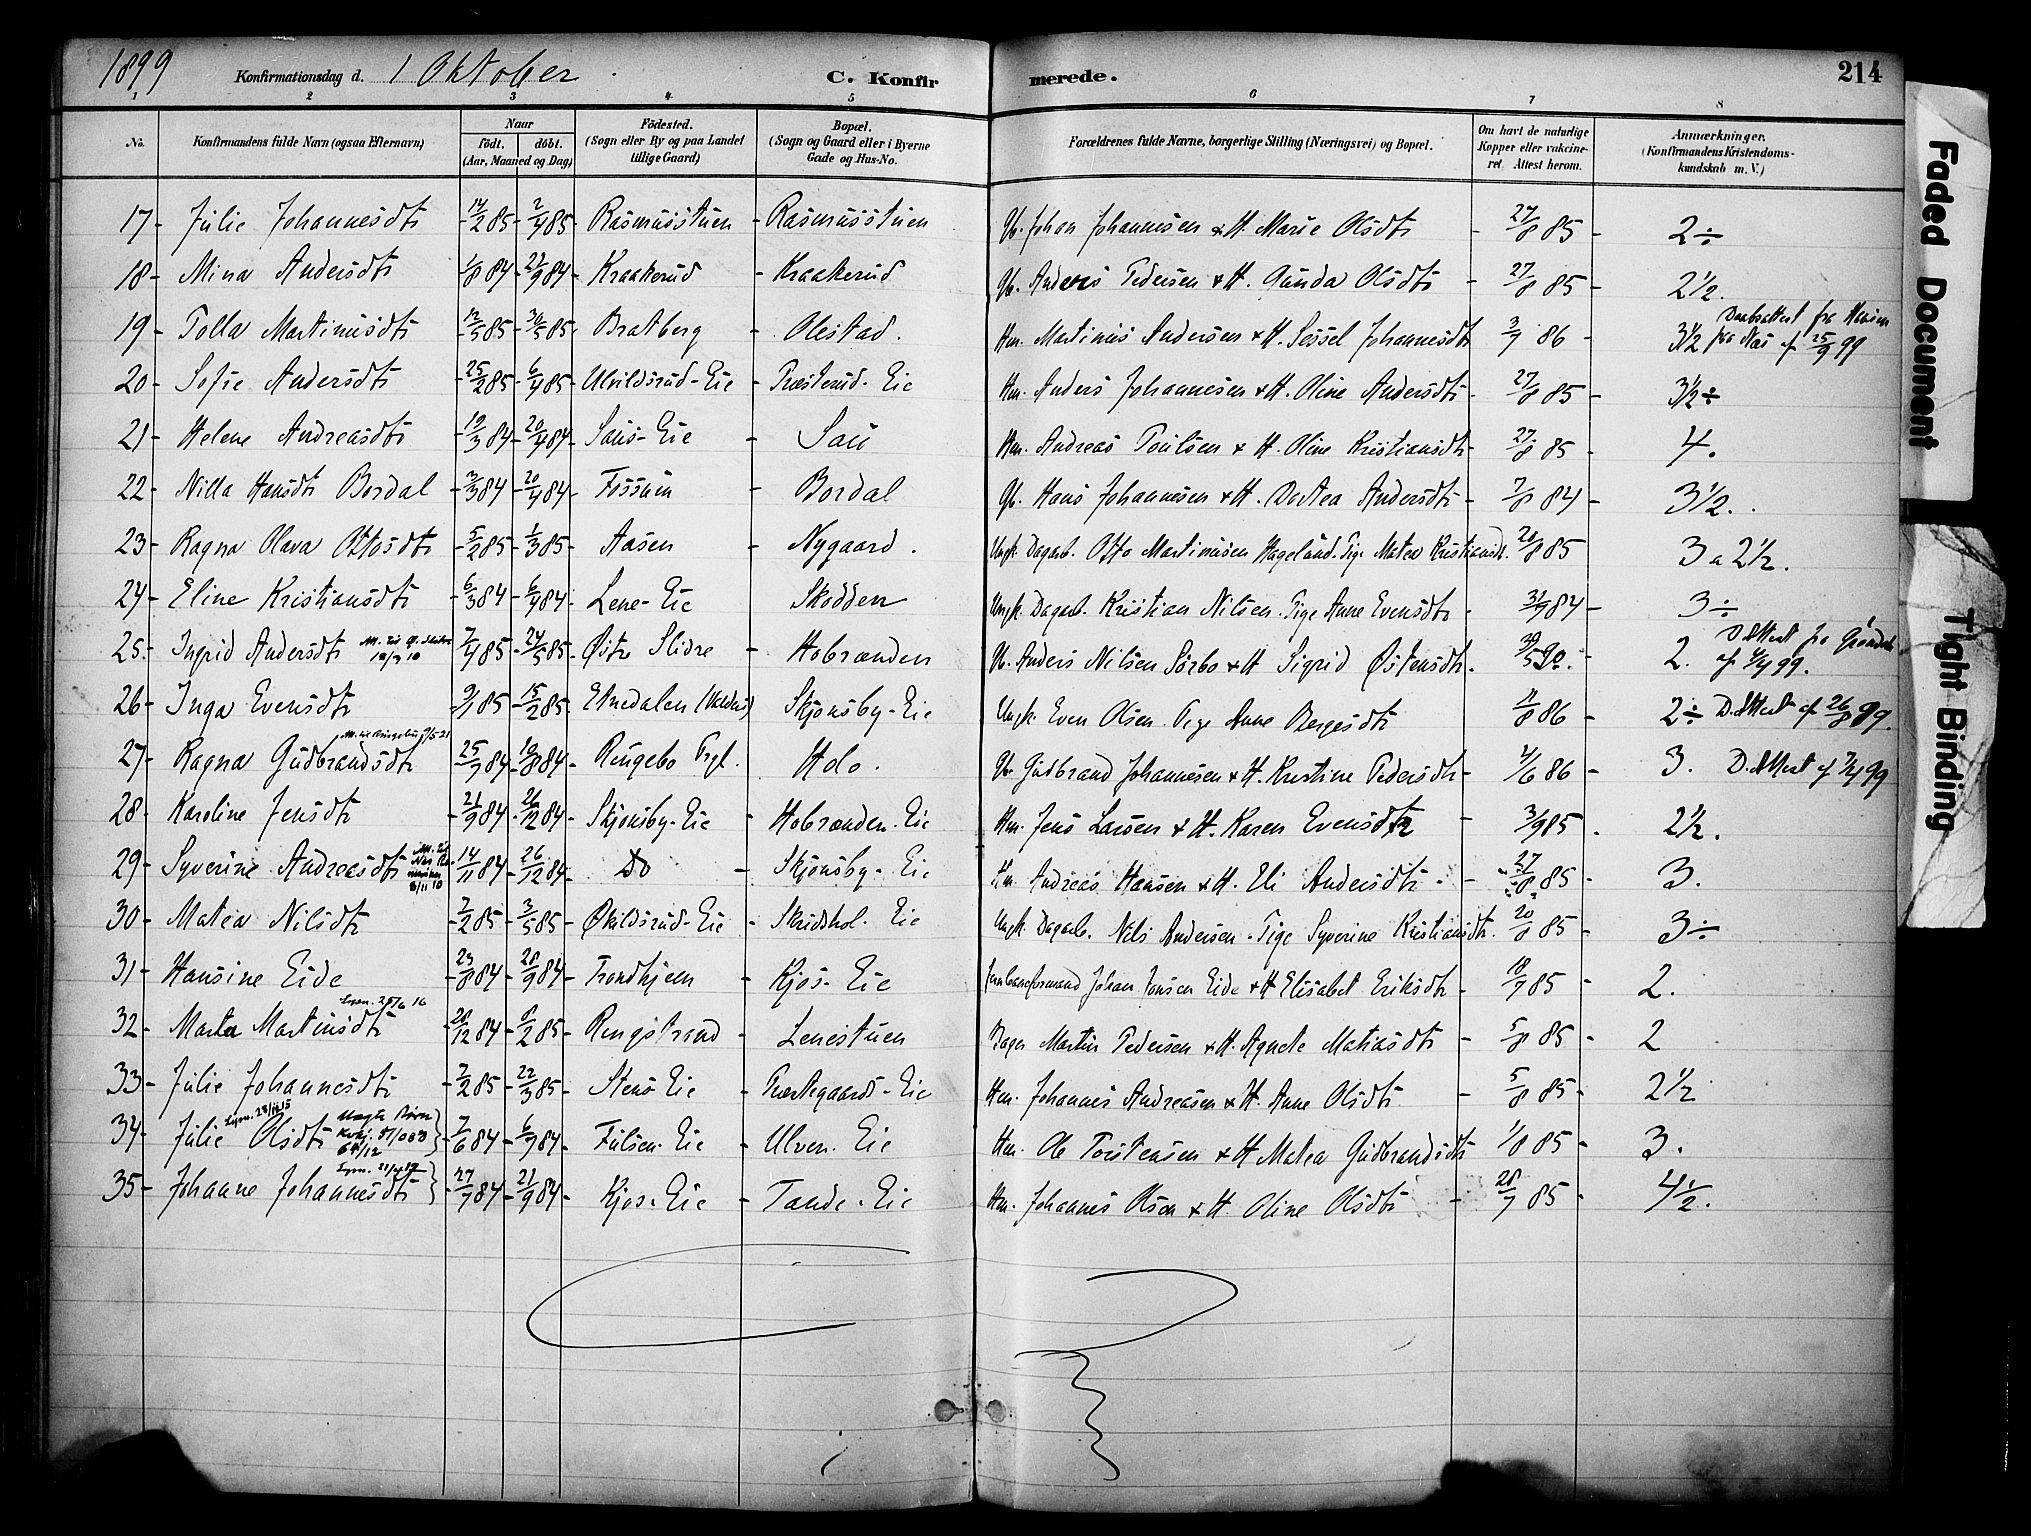 1899 Konfirmationsdag d. 1 Oktober C. Konfirmerede. 214
1 2 3 4 5 6 7 8
No. Konfirmandens fulde Navn (ogsaa Efternavn) Naar födt. döbt. (Aar, Maaned og Dag) Födested. (Sogn eller By og paa Landet tillige Gaard) Bopæl. (Sogn og Gaard eller i Byerne Gade og Hus-No. Forældrenes fulde Navne, borgerlige Stilling (Næringsvei) og Bopæl. Om havt de naturlige Kopper eller vakcineret. Attest herom. Anmærkninger. (Konfirmandens Kristendomskundskab m. V.)
17 - Julie Johannesdtr - 14/2 85 - 2/4 85 - Rasmusstuen - Rasmusstuen Johan Johannesen & H. Marie Olsdtr - 27/8 85 - 2÷
18 - Mina Andersdtr - 1/8 84 - 21/9 84 - Kraakerud - Kraakerud Anders Pedersen & H. Gunda Olsdtr - 27/8 85 - 2½.
19 - Tolla Martinusdtr - 12/3 85 - 30/5 85 - Bratberg - Olestad. Hm. Martinus Andersen & H. Sessel Johannesdtr 3/9 86 - 3½ Daabsattest fra Næs af 25/9 99
20 - Sofie Andersdtr - 25/2 85 - 6/4 85 - Ulvildsrud-Eie - Præsterud-Eie Hm. Anders Johannesen & H. Oline Andersdtr - 27/8 85 - 3½÷
21 - Helene Andreasdtr - 19/3 84 - 20/4 84 - Saus-Eie - Sau Hm. Andreas Poulsen & H. Oline Kristiansdtr - 27/8 85 - 4.
22 - Nilla Hansdtr Bordal - 3/3 84 - 20/4 84 - Fossum - Bordal Hans Johannesen & H. Dortea Andersdtr - 7/8 84 - 3½.
23 - Ragna Olava Ottosdtr - 5/2 85 - 1/3 85 - Aasen - Nygaard. Ungk. Dagarb. Otto Martinusen Hagelund. Pige Matea Kristiansdtr. 20/8 85 3 a 2½.
24 - Eline Kristiansdtr - 6/3 84 - 6/4 84 - Lene-Eie - Skodden Ungk. Dagarb. Kristian Nilsen. Pige Anne Evensdtr - 31/9 84 - 3÷
25 - Ingrid Andersdtr - 7/4 85 - 24/5 85 - Østre Slidre - Hobranden Anders Nilsen Sørbo & H. Sigrid Østensdtr. 30/5 90. 2. D.Attest fra af 4/4 99.
26 - Inga Evensdtr - 9/1 85 - 15/2 85. Etnedalen (Valdres) Skjønsby-Eie Ungk. Even Olsen. Pige Anne Børgesdtr 11/8 86 - 2÷ D.Attest af 26/8 99.
27 - Ragna Gudbrandsdtr M. til Ringebu 9/5 21 25/7 84 - 10/8 84 - Ringebo Prgl. - Holo. Gudbrand Johannesen & H. Kristine Pedersdtr - 4/6 86 - 3. D.Attest af 7/4 99
28 - Karoline Jensdtr - 21/9 84 - 26/12 84 - Skjønsby-Eie - Hobranden-Eie Hm. Jens Larsen & H. Karen Evensdtr - 3/9 85. 2½.
29 - Syverine Andreasdtr 8/11 10 - 14/11 84 - 26/12 84 - Do - Skjønsby-Eie Hm. Andreas Hansen & H. Eli Andersdtr - 27/8 85 - 3.
30 - Matea Nilsdtr - 7/2 85 - 3/5 85 - Økildsrud-Eie - Skridshol-Eie Ungk. Dagarb. Nils Andersen - Pige Syverine Kristiansdtr. 20/8 85 - 3÷
31 - Hansine Eide - 23/8 84 - 28/9 84 - Trondhjem - Kjos-Eie Jernbaneformand Johan Jonsen Eide & H. Elisabet Eriksdtr - 18/7 85 - 2.
32 - Marta Martinsdtr Lysn. 25/6 16 - 20/12 84 - 8/2 85 - Ringstrand - Lenestuen Bager Martin Pedersen & H. Agnete Matiasdtr - 5/8 85 - 2
33 - Julie Johannesdtr - 7/2 85 - 22/3 85 - Stens-Eie - Præstegaards-Eie Hm. Johannes Andreasen & H. Anne Olsdtr - 5/8 85 - 2½
34 - Julie Olsdtr - 7/6 84 - 6/7 84 - Fulsen-Eie - Ulven-Eie Hm. Ole Torstensen & H. Matea Gudbrandsdtr 1/8 85 - 3.
35 - Johanne Johannesdtr - 27/7 84 - 21/9 84 - Kjos-Eie - Tande-Eie Hm. Johannes Olsen & H. Oline Olsdtr - 28/7 85 - 4½.
Faded Document
Tight Binding